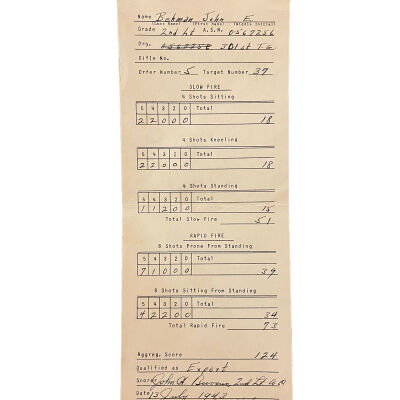 Name Behman John E.
(Last Name) (First Name) (Middle Initial)
Grade 2nd Lt A.S.N. 0567256
Org. 1567256 301st T.G.
Rifle No.
Order Number 5 Target Number 37
SLOW FIRE
4 Shots Sitting
5 4 3 2 0 Total
2 2 0 0 0 18
4 Shots Kneeling
5 4 3 2 0 Total
2 2 0 0 0 18
4 Shots Standing
5 4 3 2 0 Total
1 1 2 0 0 15
Total Slow Fire 51
RAPID FIRE
8 Shots Prone From Standing
5 4 3 2 0 Total
7 1 0 0 0 39
8 Shots Sitting From Standing
5 4 3 2 0 Total
4 2 2 0 0 34
Total Rapid Fire 73
Aggreg. Score 124
Qualified as Expert
Score John H. 2nd Lt
Date 13 July 1943